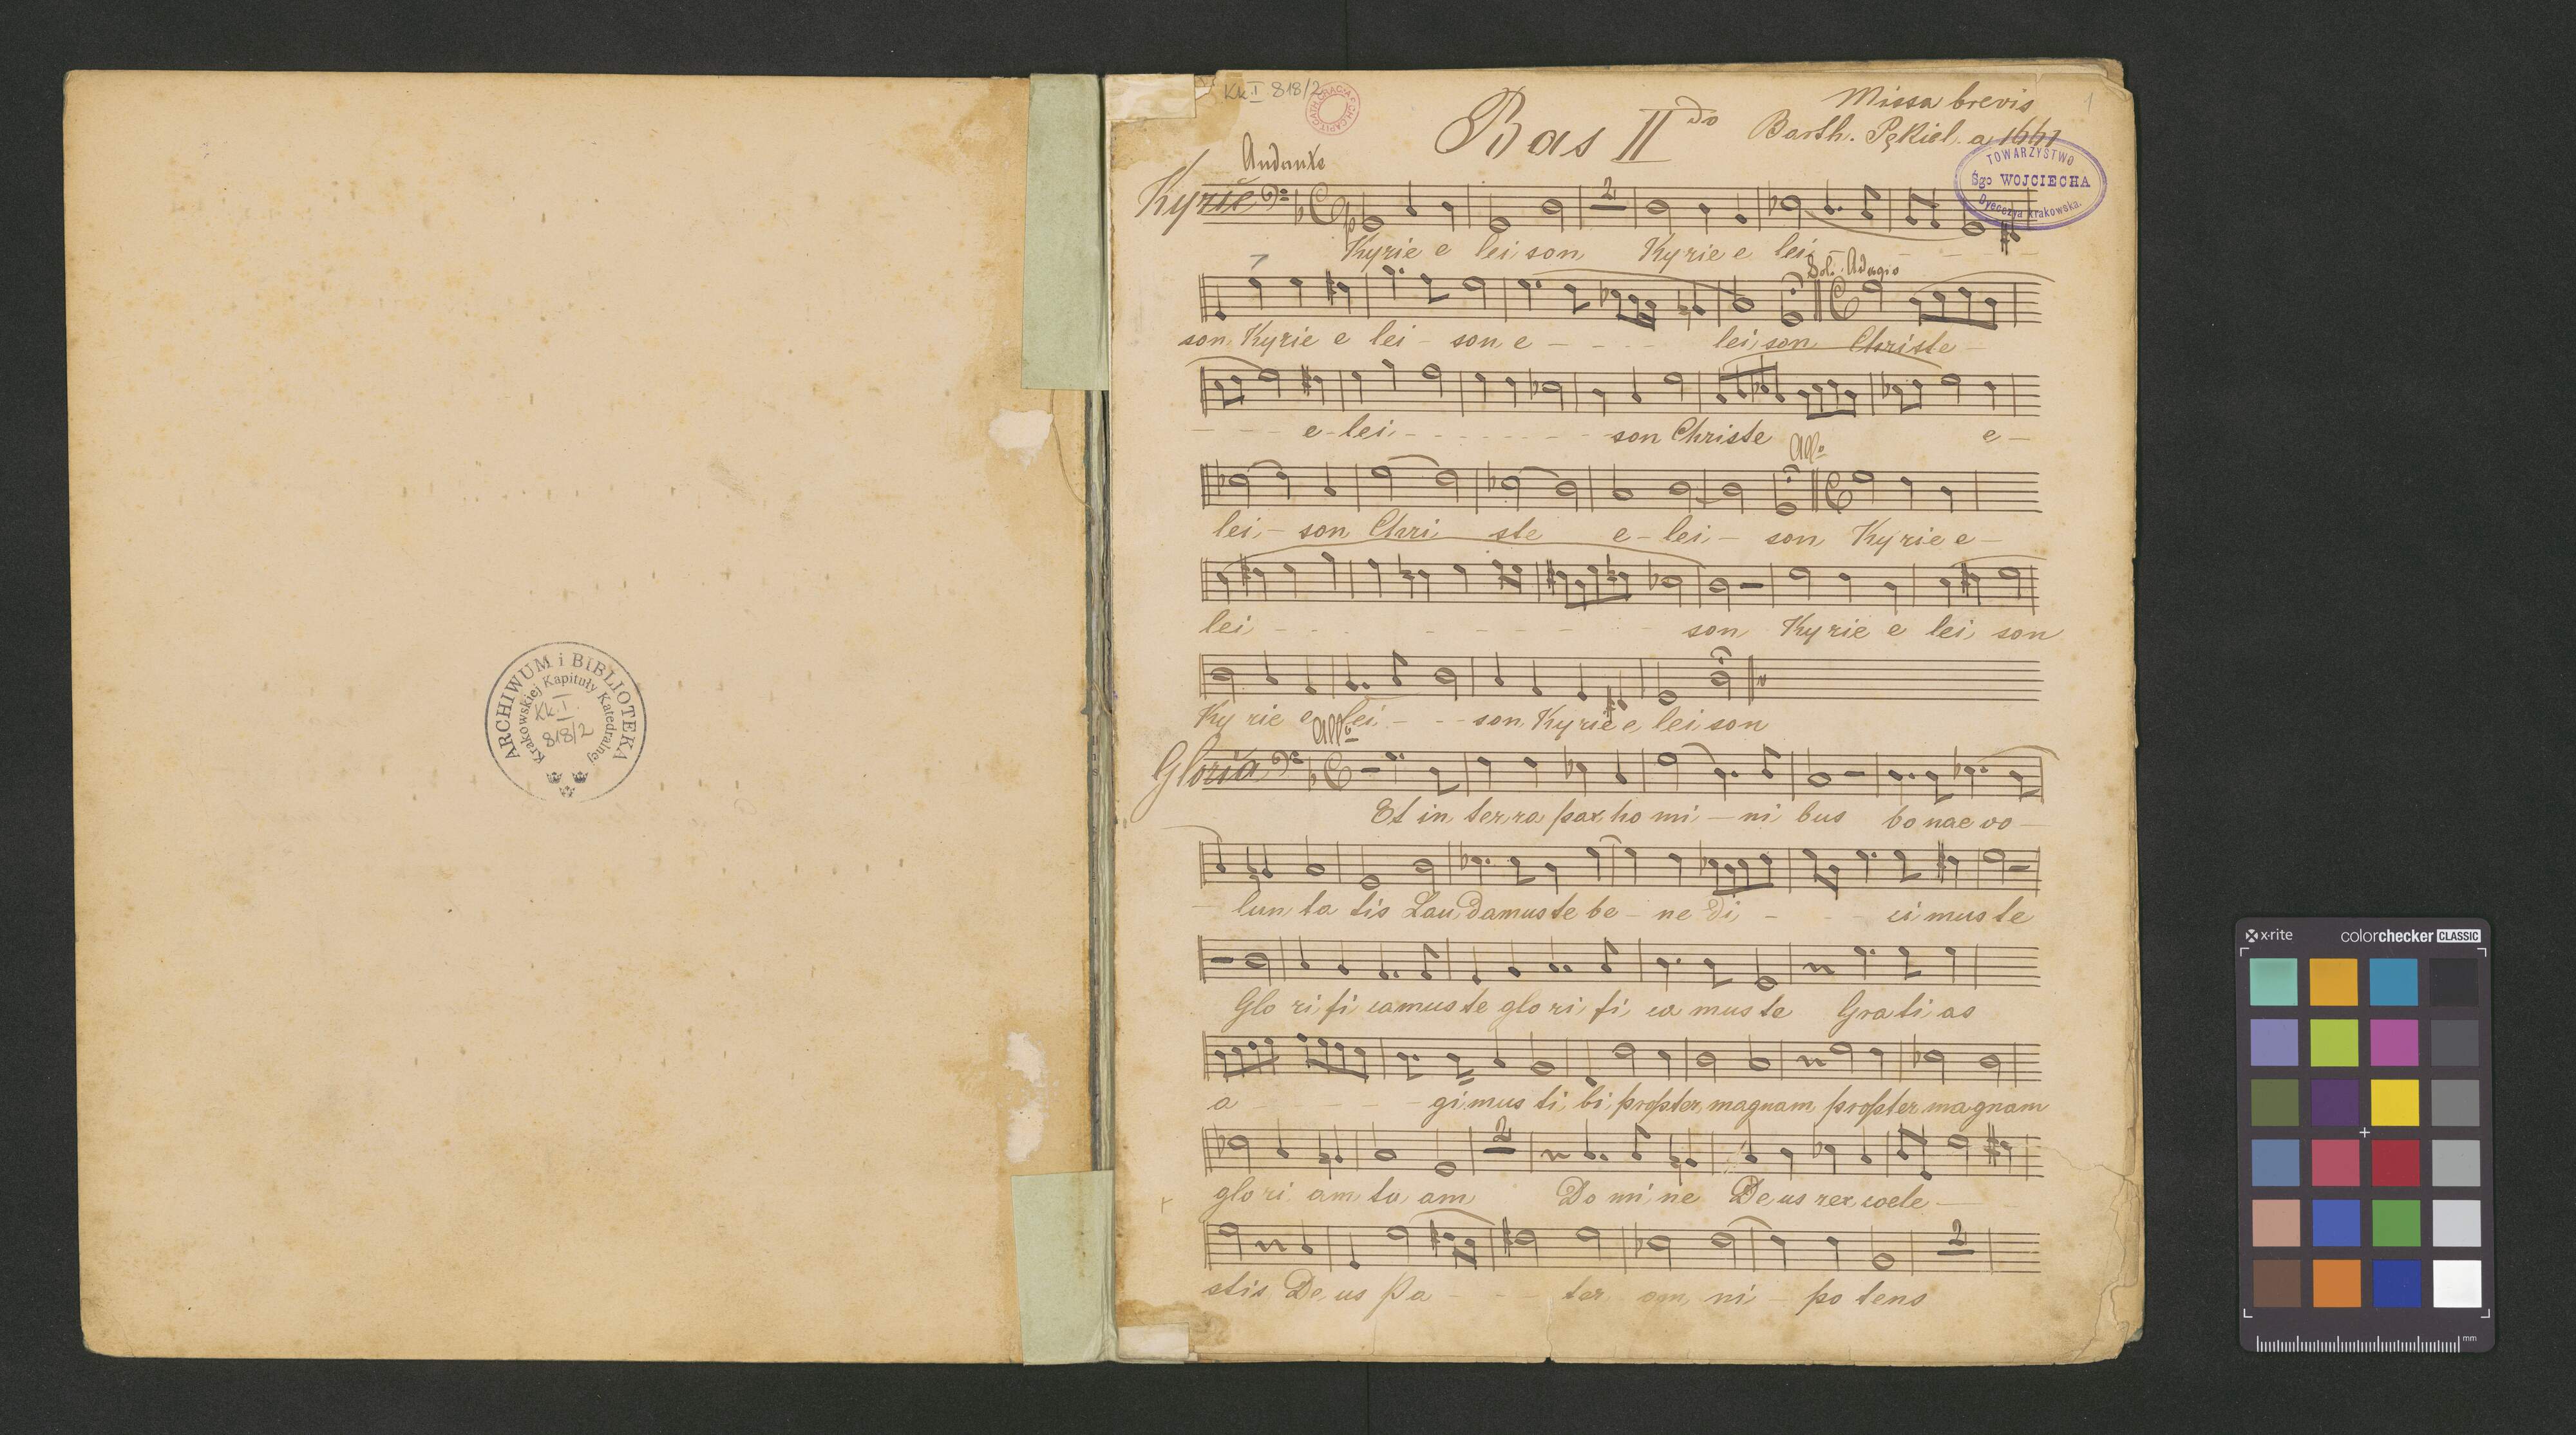 ARCHIWUM i BIBLIOTEKA
Krakowskiej Kapituły Katedralnej
Kk. I.
818/2
Kk I 818/2
1
Missa brevis
Bas II do
Barth. Pękiel. a 1661
TOWARZYSTWO
Śgo WOJCIECHA
Dyecezya krakowska.
Andante
Kyrie
2
p
Kyrie e lei son Kyrie e lei - - - -
Sol. Adagio
son Kyrie e lei - son e - - - - lei son Christe -
- - - e - lei - - - - - - - son Christe e -
Allo
lei - son Chri ste e - lei - son Kyrie e -
lei - - - - - - - - son Kyrie e lei son
Ky rie e lei - - son Kyrie e lei son
Allo
Gloria
Et in ter ra pax ho mi - ni bus bo nae vo -
- lun ta tis Lau damus te be - ne di - - - ci mus te
Glo ri fi camus te glo ri fi ca mus te Gra ti as
a - - - - - gi mus ti bi propter magnam propter magnam
2
glo ri am tu am Do mi ne De us rex coele -
2
stis De us Pa - - - ter om ni - po tens
x-rite
colorchecker CLASSIC
mm